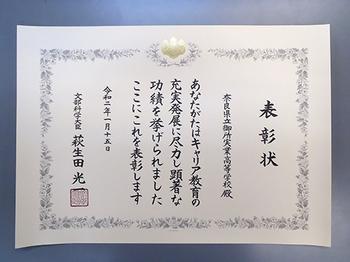 表彰状
奈良県立御所実業高等学校殿
あなたがたはキャリア教育の
充実発展に尽力し顕著な
功績を挙げられました
ここにこれを表彰します
令和二年一月十五日
文部科学大臣 萩生田光一